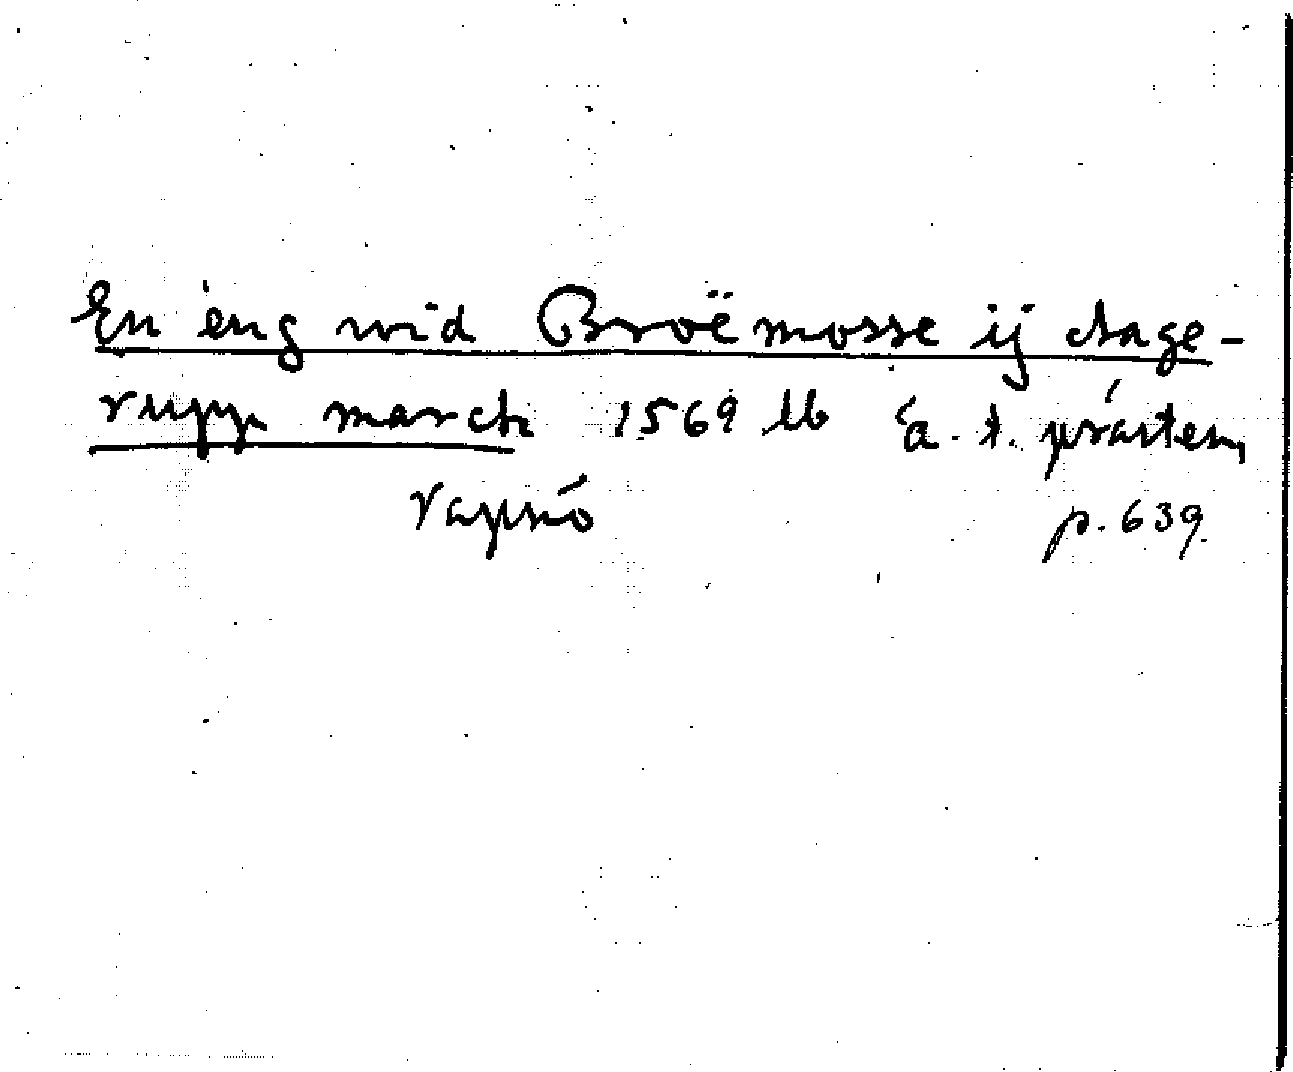 En eng wid Broëmosse ij Aage-
rupp march 1569 lb ä. t. prästen,
p. 639.